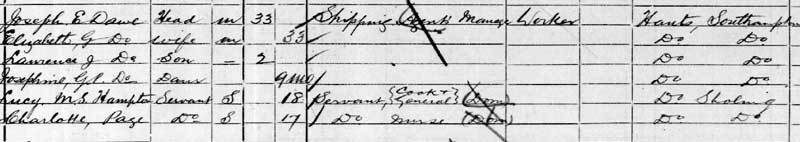 Joseph E. Dawe Head m 33 Shipping Agents Manage Worker Hants, Southampton
Elizabeth G Do wife m 33 Do Do
Lawrence J Do Son – 2 Do Do
Josephine, G.C. Do Daur 9 mo Do Do
Lucy, M.S. Hampton Servant S 18 Servant {Cook + General} (Dom) Do Sholing
Charlotte, Page Do S 17 Do Nurse (Dom) Do Do